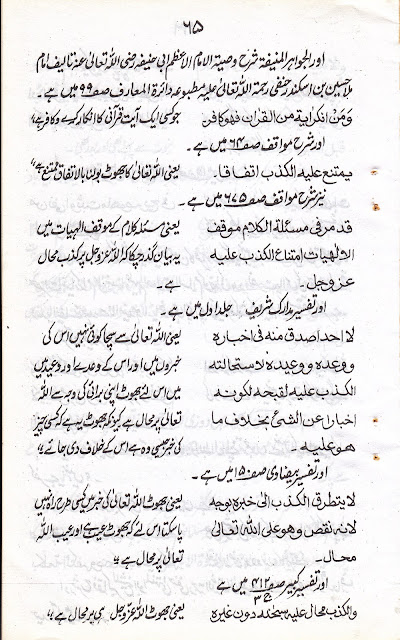 ۶۵
اور الجواہر المنیفۃ شرح وصیۃ الامام الاعظم ابی حنیفہ رضی اللہ تعالیٰ عنہ تالیف امام
ملا حسین بن اسکندر حنفی رحمۃ اللہ تعالیٰ علیہ مطبوعہ دائرۃ المعارف صفہ ۹۹ میں ہے۔
وَمَنْ انکر اٰیۃ من القراٰن فھو کافر جو کسی ایک آیت قرآنی کا انکار کرے وہ کافر ہے
اور شرح مواقف صفہ ۶۴ میں ہے۔
یمتنع علیہ الکذب اتفاقا۔ یعنی اللہ تعالیٰ کا جھوٹ بولنا بالاتفاق ممتنع ہے
نیز شرح مواقف صفہ ۶۷۵ میں ہے۔
قد مر فی مسئلۃ الکلام موقف یعنی مسئلہ کلام کے موقف الٰہیات میں
الالھیات امتناع الکذب علیہ یہ بیان گذر چکا کہ اللہ عزوجل پر کذب محال
عزوجل۔ ہے۔
اور تفسیر مدارک شریف جلد اول میں ہے۔
لا احد اصدق منہ فی اخبارہ یعنی اللہ تعالیٰ سے سچا کوئی نہیں اس کی
ووعدہ ووعیدہ لاستحالۃ خبروں میں اور اس کے وعدے اور وعید میں
الکذب علیہ لقبحہ لکونہ میں اس لئے جھوٹ اپنی برائی کی وجہ سے اللہ
اخبارا عن الشئ بخلاف ما تعالیٰ پر محال ہے کیونکہ جھوٹ یہ ہے کہ کسی چیز
ھو علیہ۔ کی خبر جیسی وہ ہے اس کے خلاف دی جائے
اور تفسیر بیضاوی صفہ ۱۵۰ میں ہے۔
لا یتطرق الکذب الی خبرہ بوجہ یعنی جھوٹ اللہ تعالیٰ کی خبر میں کسی طرح راہ نہیں
لانہ نقص وھو علی اللہ تعالیٰ پا سکتا اس لئے کہ جھوٹ عیب ہے اور عیب اللہ
محال۔ تعالیٰ پر محال ہے
اور تفسیر کبیر صفہ میں ہے
والکذب محال علیہ سبحنہ دون غیرہ یعنی جھوٹ اللہ عزوجل ہی پر محال ہے